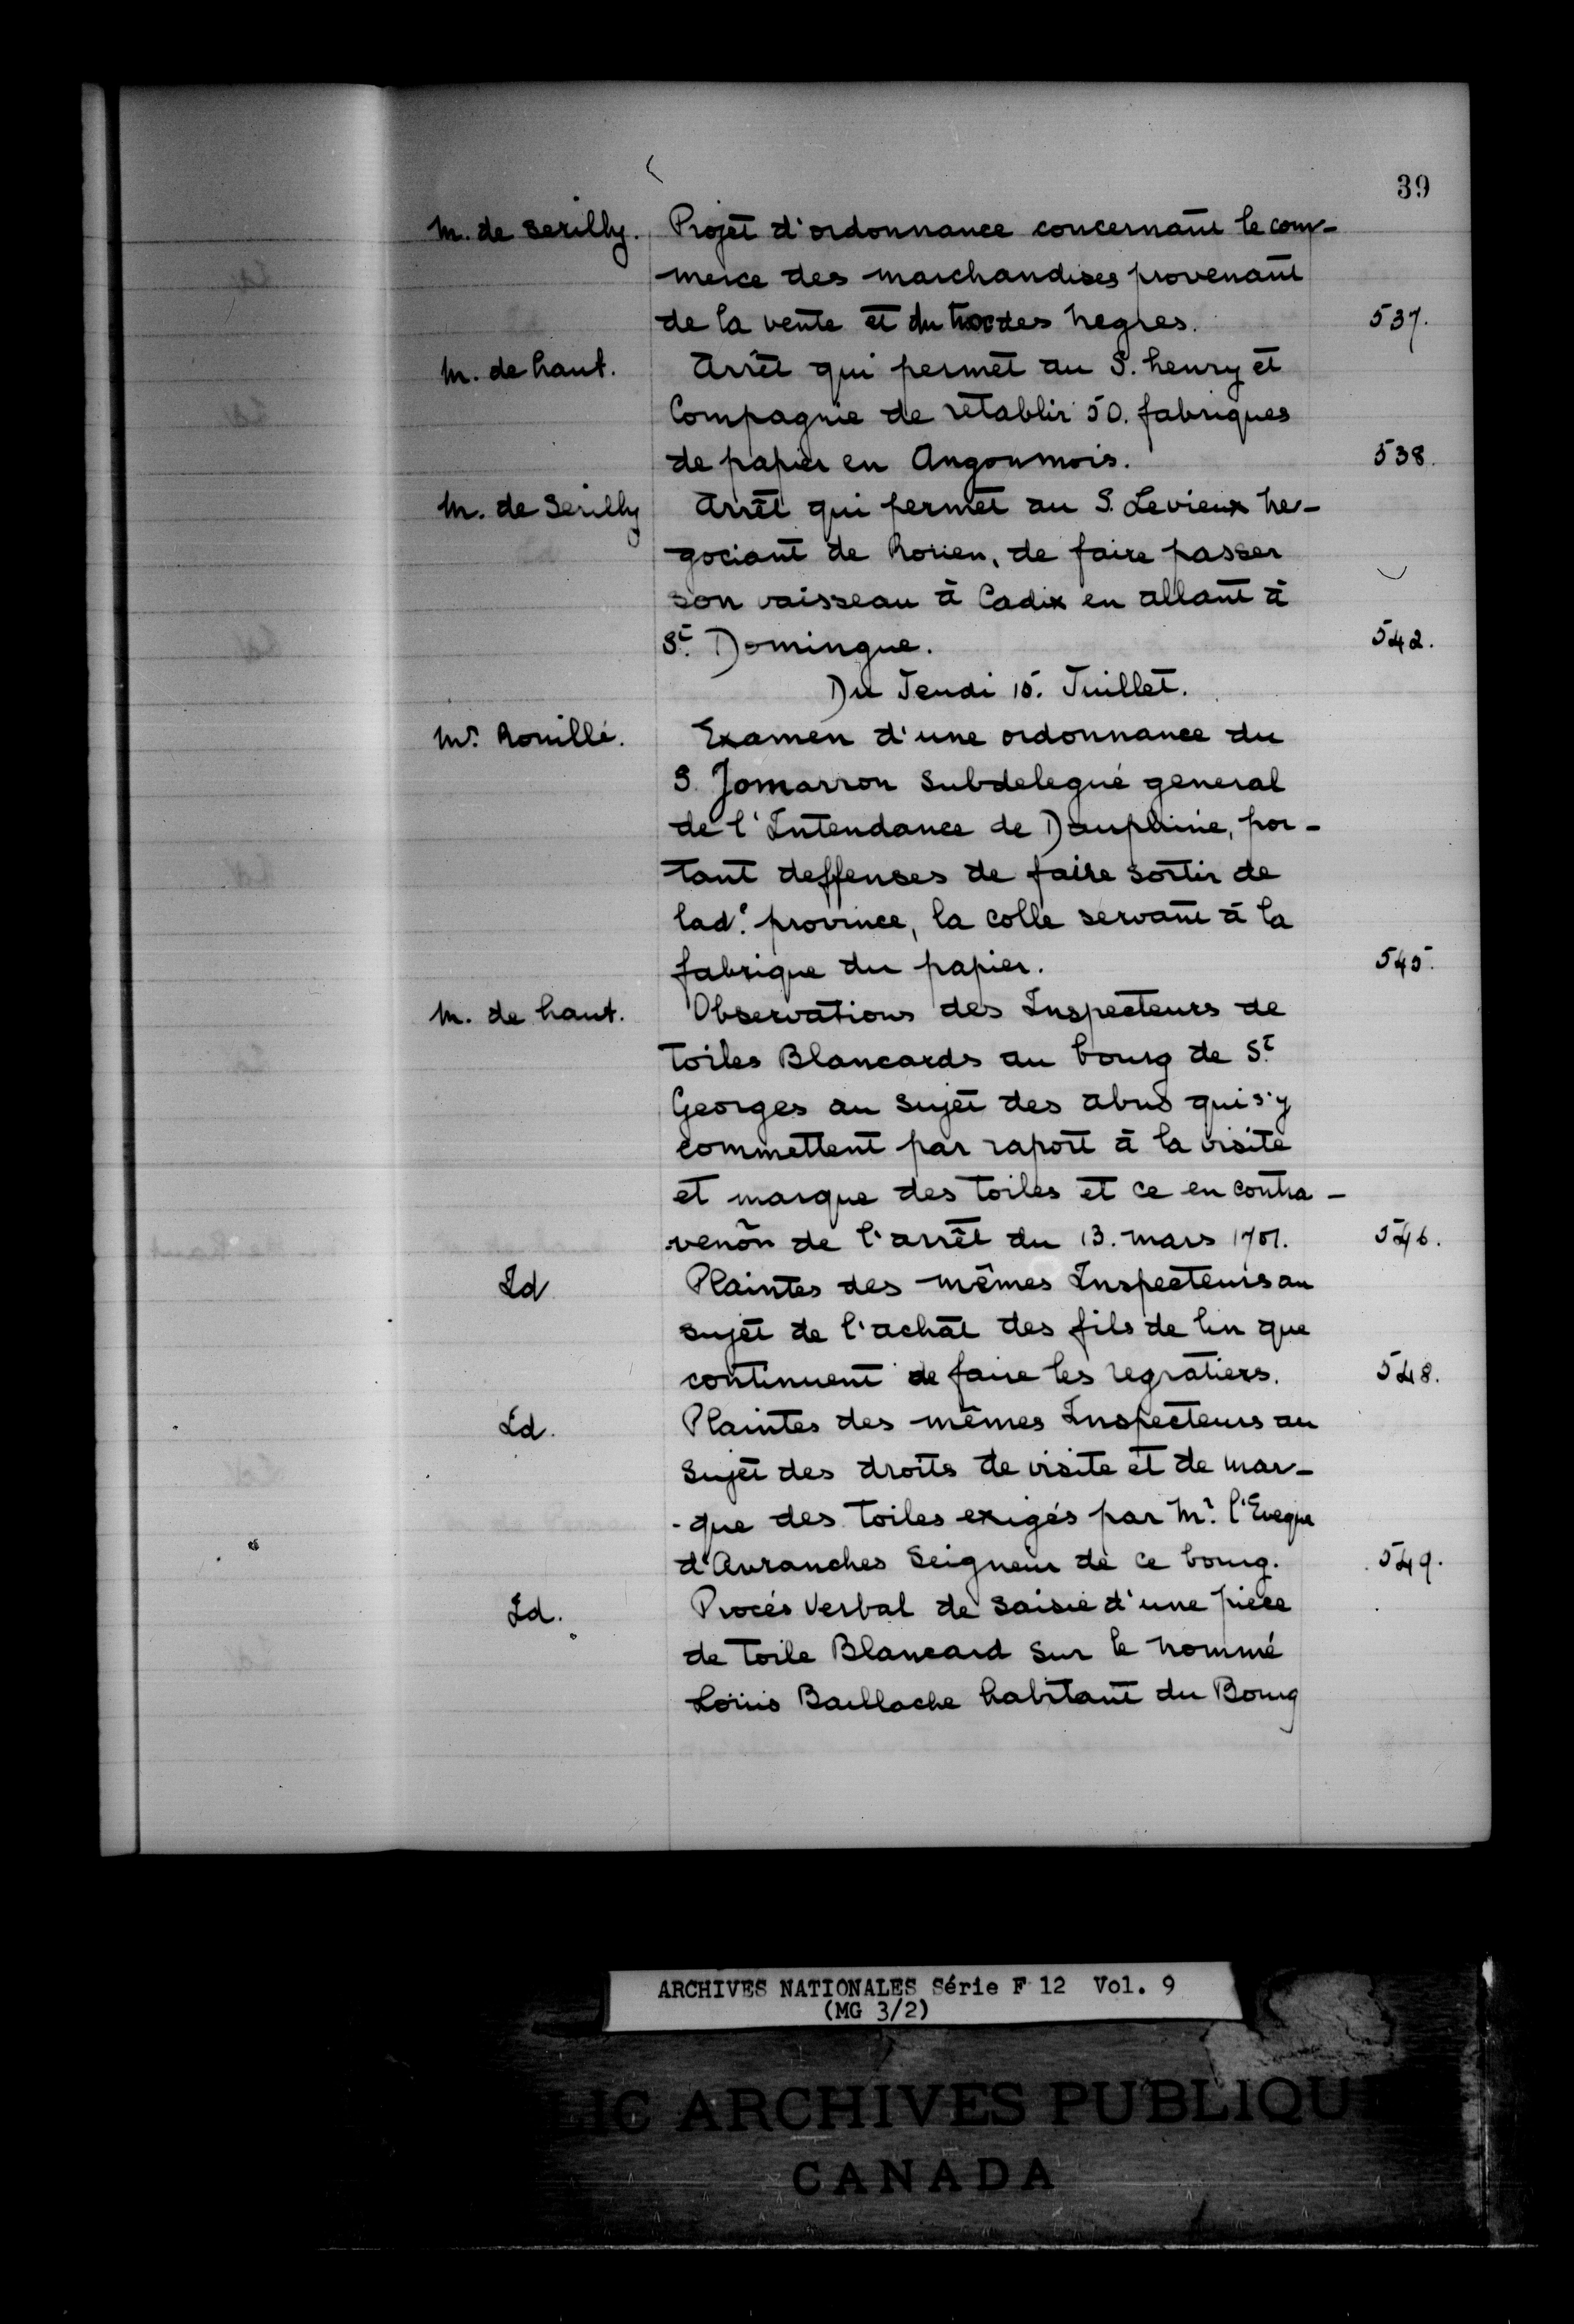 39
M. de Serilly. Projet d'ordonnance concernant le com-
merce des marchandises provenant
de la vente et du troc des negres. 537.
M. de haut. Arrêt qui permet au S. henry et
Compagnie de retablir 50. fabriques
de papier en Angoumois. 538.
M. de Serilly Arrêt qui permet au S. Levieux ne-
gociant de Roüen, de faire passer
son vaisseau à Cadix en allant à
St. Domingue. 542.
Du Jeudi 15. Juillet.
Mr. Rouillé. Examen d'une ordonnance du
S. Jomarron Subdelegué general
de l'Intendance de Dauphiné, por-
tant deffenses de faire sortir de
lad.e province, la colle servant à la
fabrique du papier. 545.
M. de haut. Observations des Inspecteurs de
toiles Blancards au bourg de St.
Georges au sujet des abus qui s'y
commettent par raport à la visite
et marque des toiles et ce en contra-
venõn de l'arrêt du 13. mars 1701. 546.
Id Plaintes des mêmes Inspecteurs au
sujet de l'achat des fils de lin que
continuent de faire les regratiers. 548.
Id. Plaintes des mêmes Inspecteurs au
Sujet des droits de visite et de mar-
-que des toiles exigés par Mr. l'Eveque
d'Avranches Seigneur de ce bourg. 549.
Id. Procés Verbal de Saisie d'une piéce
de toile Blancard sur le nommé
Loüis Baillache habitant du Bourg
ARCHIVES NATIONALES Série F 12 Vol. 9
(MG 3/2)
LIC ARCHIVES PUBLIQU
CANADA